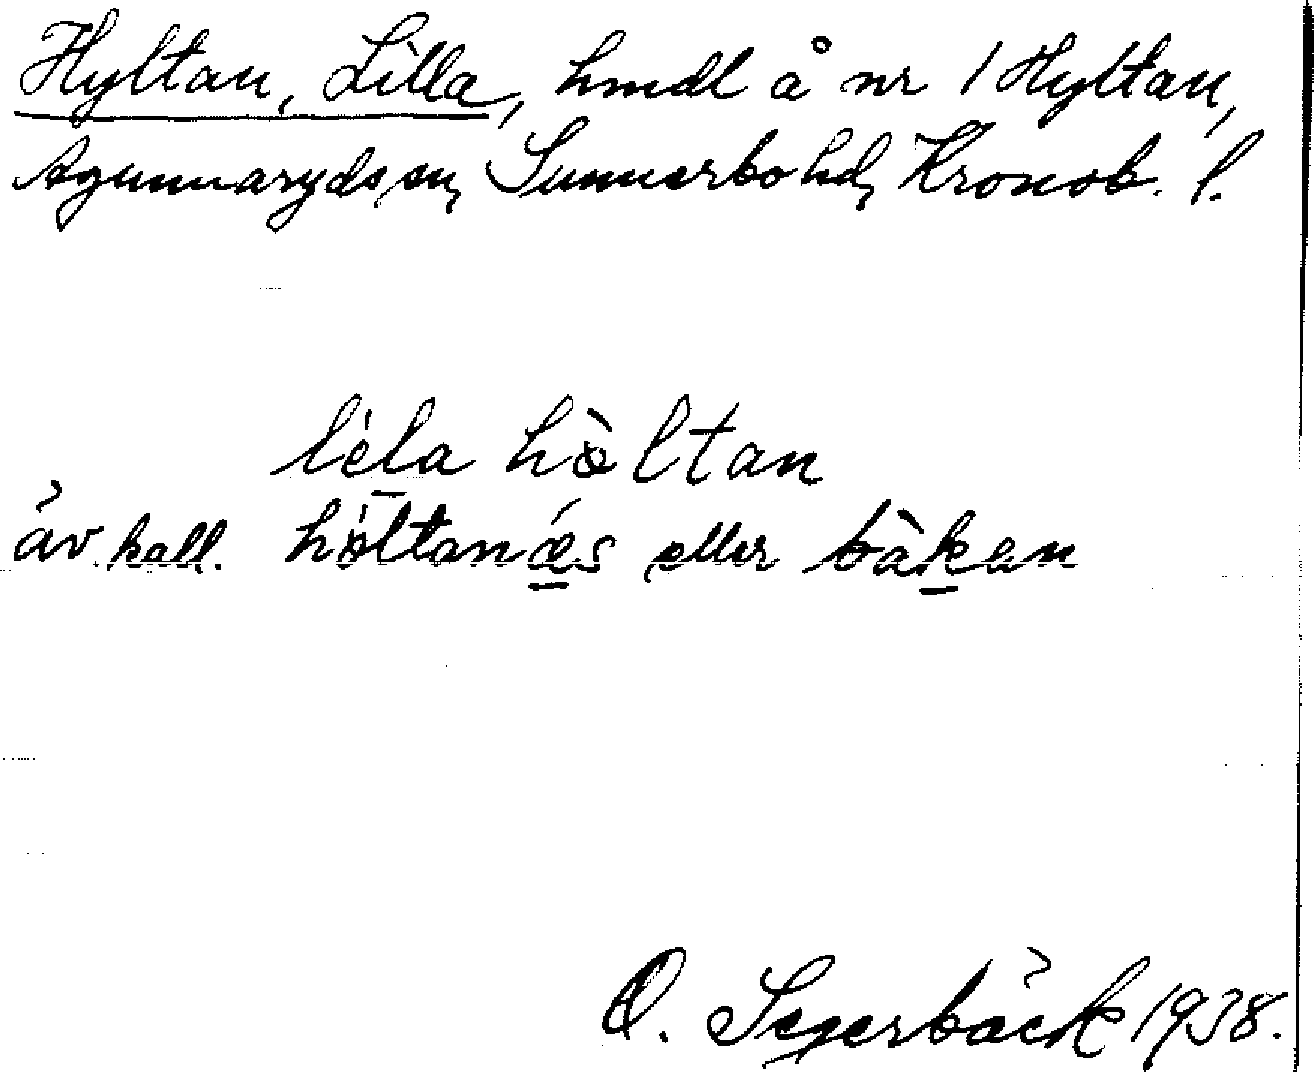 Hyltan, Lilla, hmdl å nr 1 Hyltan,
Agunnaryds sn, Sunnerbo hd, Kronob. l.
lèla hòltan
äv. kall. höltanǽs eller bàkan
O. Segerbäck 1938.